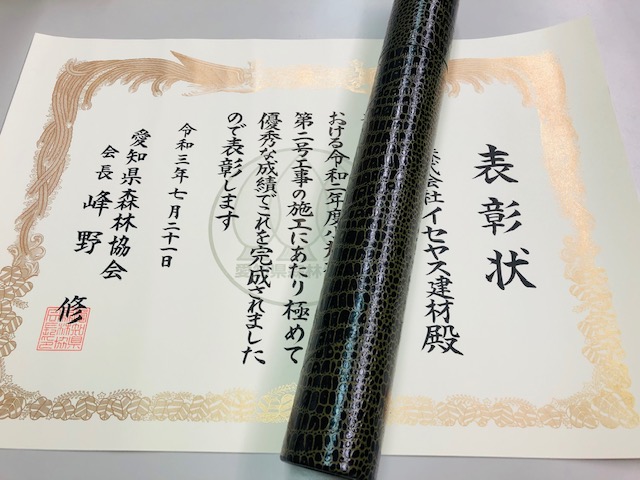 表彰状
株式会社イセヤス建材殿
おける令和二年度
第二号工事の施工にあたり極めて
優秀な成績でこれを完成されました
ので表彰します
令和三年七月二十一日
愛知県森林協会
会長 峰野 修